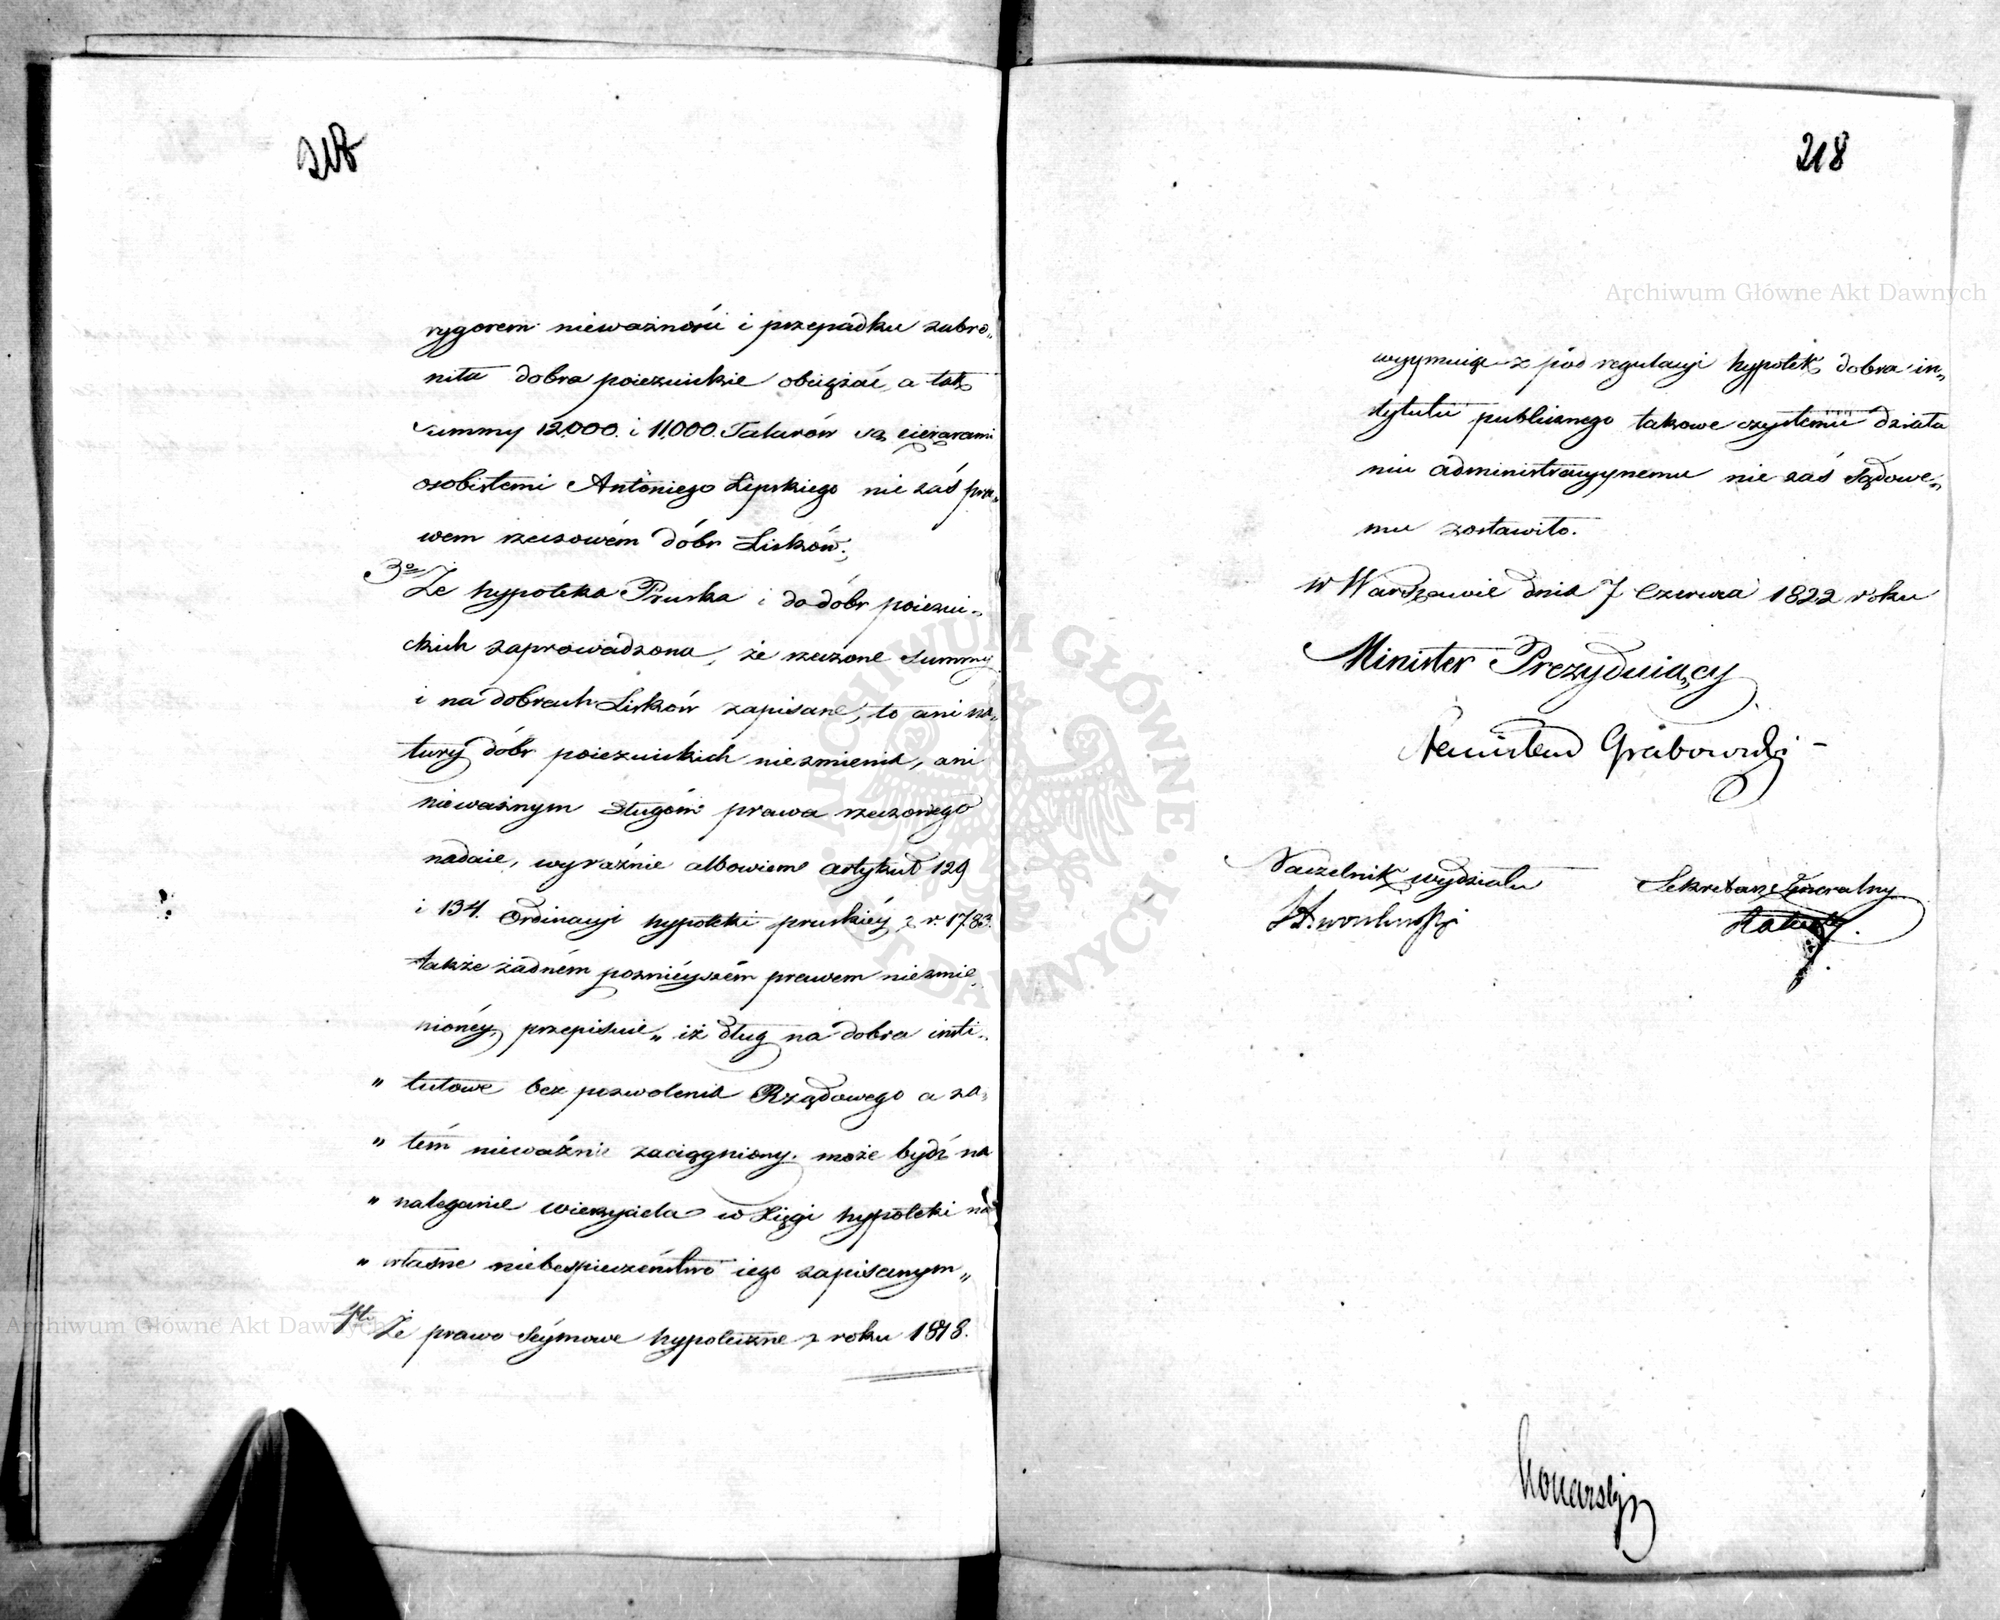 217
rygorem nieważności i przepadku zabro„
niła dobra poiezuickie obciążać, a tak
summy 12,000. i 11,000. Talarów są ciężarami
osobistemi Antoniego Lipskiego nie zaś pra„
wem rzeczowém dóbr Lisków.;
3o Że hypoteka Pruska i do dóbr poiezui„
ckich zaprowadzona, że rzeczone summy
i na dobrach Lisków zapisane, to ani na„
tury dóbr poiezuickich niezmienia, ani
nieważnym długóm prawa rzeczowego
nadaie, wyraźnie albowiem artykuł 129
i 134. Ordinacyi hypoteki pruskiéy z r. 1783.
także żadném poźniéyszém prawem niezmie„
nionéy, przepisuie „ iż dług na dobra insti„
„ tutowe bez pozwolenia Rządowego a za„
„ tém nieważnie zaciągniony, może bydź na
„ naleganie wierzyciela w Xięgi hypoteki na
„ własne niebespieczeństwo iego zapisanym „
4to Że prawo Séymowe hypoteczne z roku 1818.
218
wyymuiąc z pod regulacyi hypotek dobra in„
stytutu publicznego takowe czystemu działa
niu administracyynemu nie zaś sądowe„
mu zostawiło.
w Warszawie dnia 7 Czerwca 1822 roku
Minister Prezyduiący
Stanisław Grabowski
Naczelnik wydziału
Sekretarz Jeneralny
Konarski
Archiwum Główne Akt Dawnych
Archiwum Główne Akt Dawnych
ARCHIWUM GŁÓWNE AKT DAWNYCH